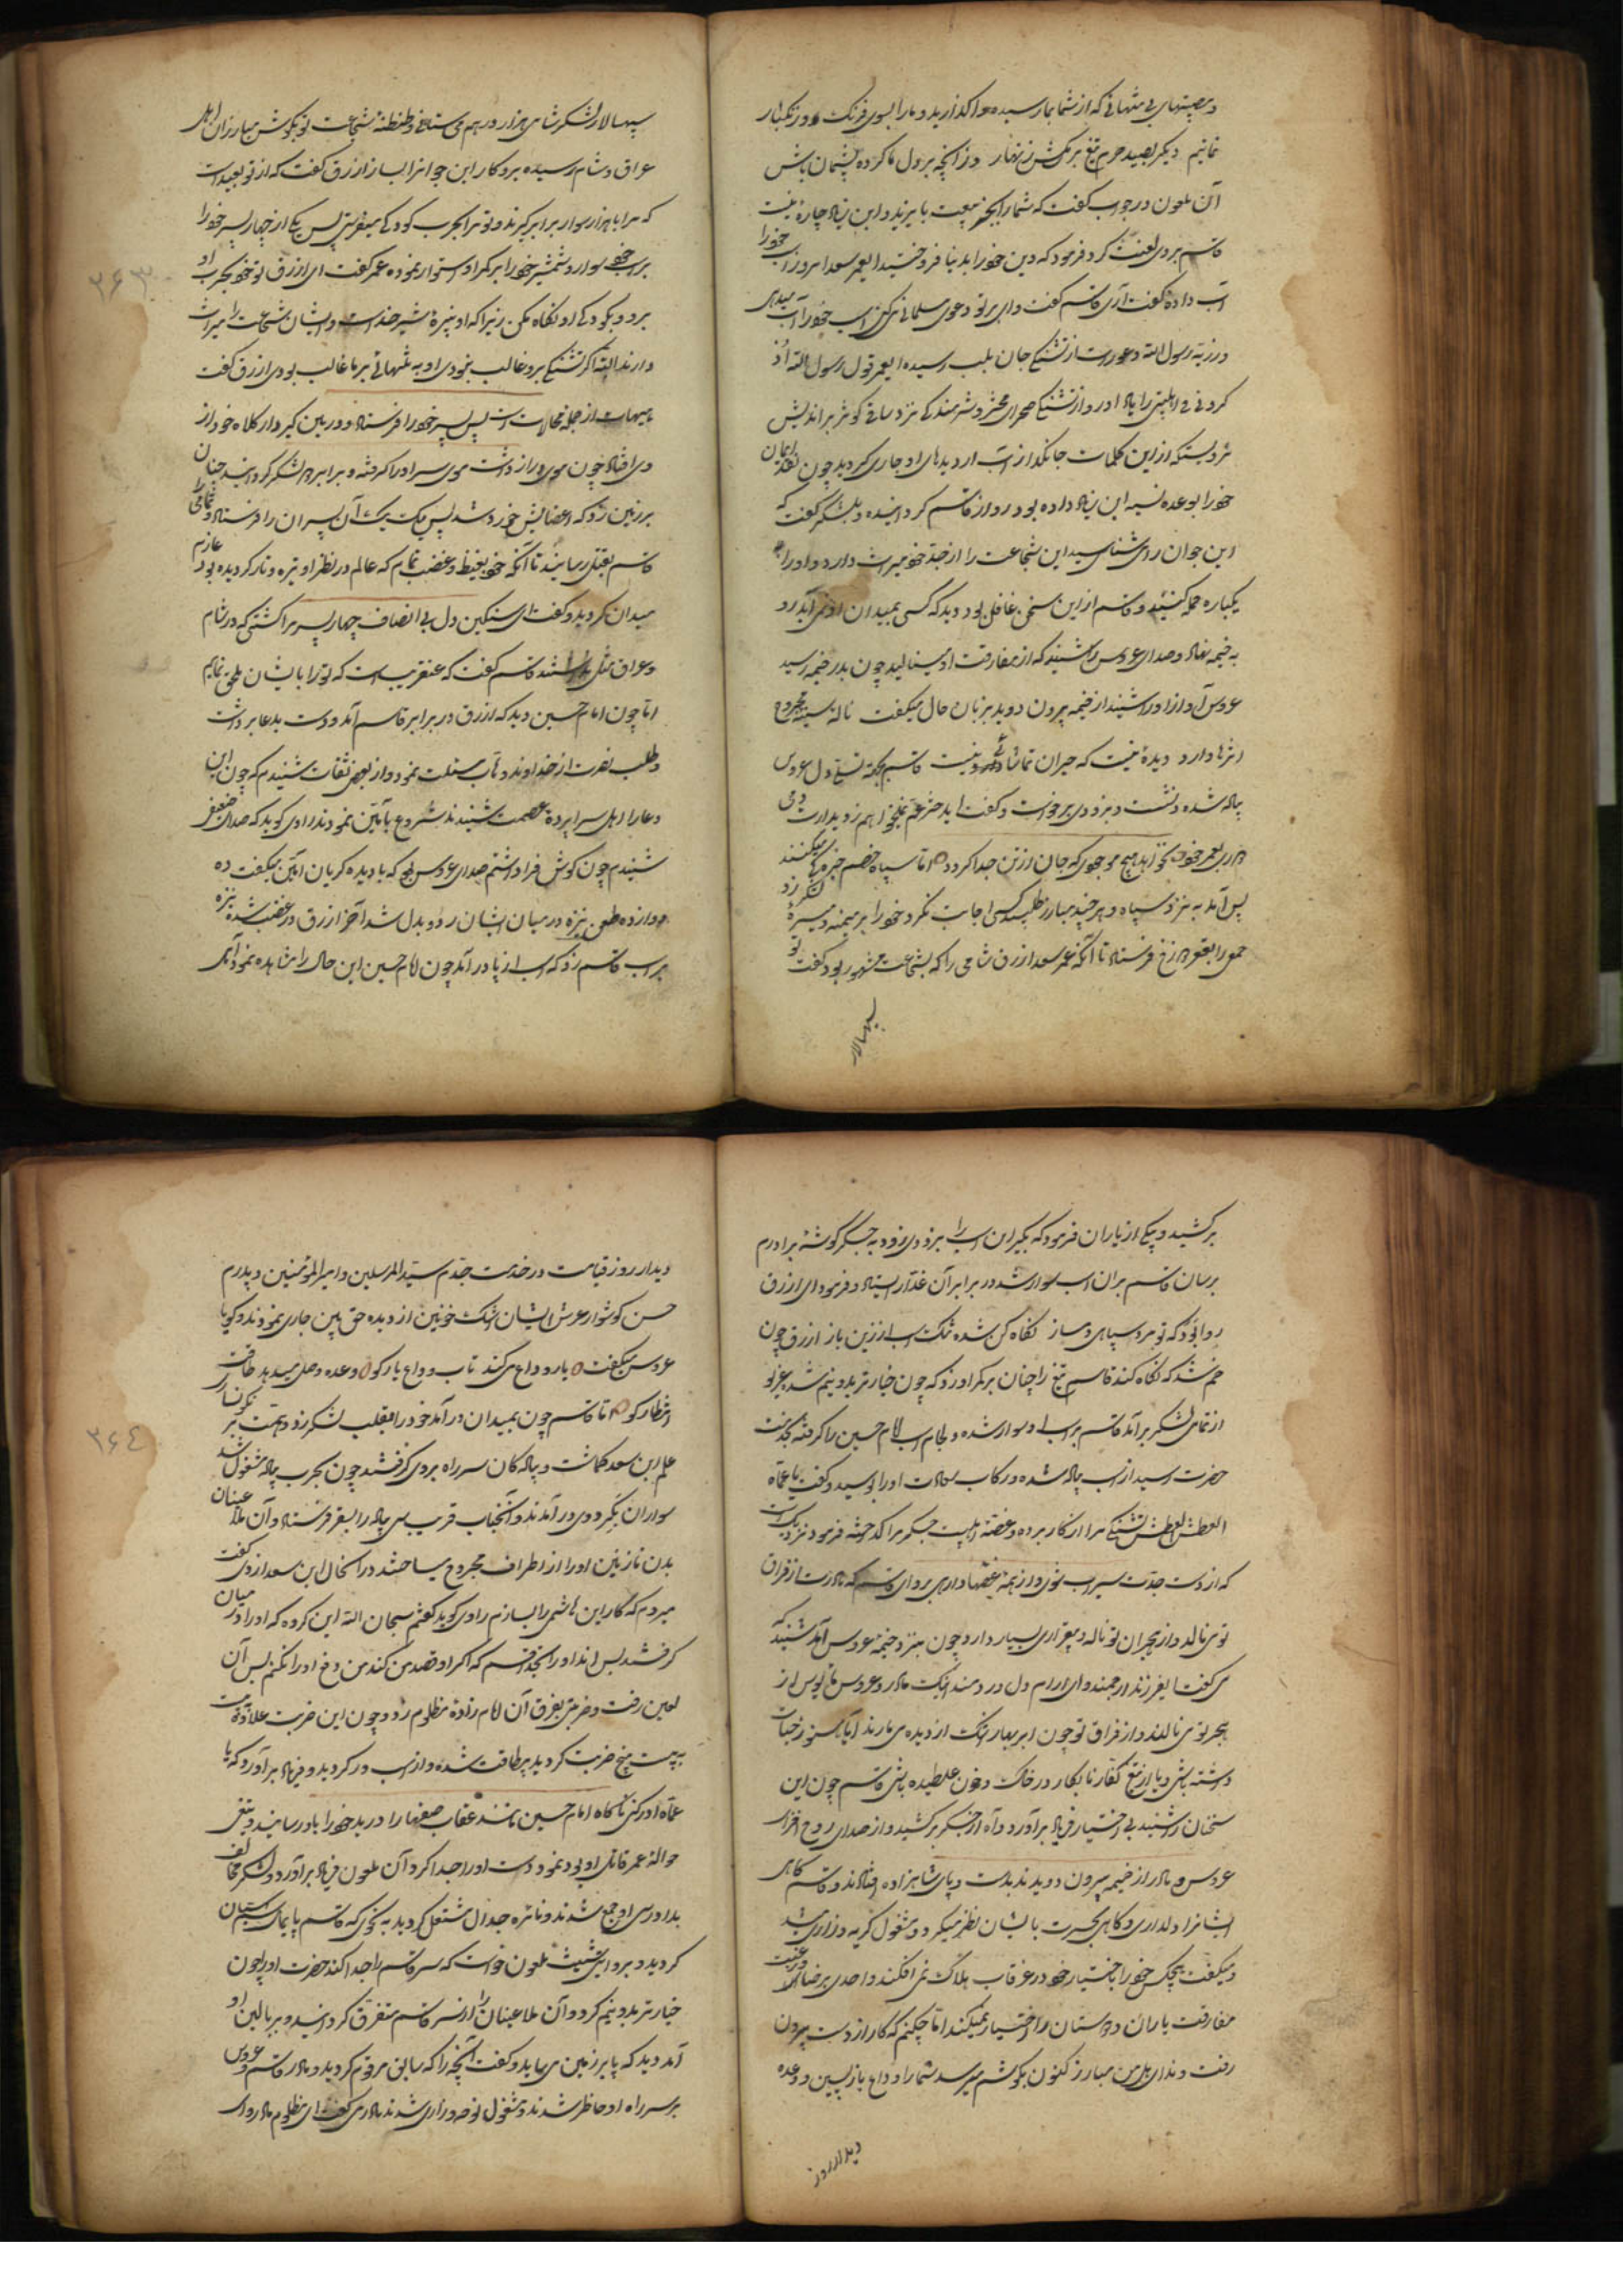 و مصیبتهای بی منتهائی که از شما بما رسیده واگذارید و ما را بسوی فرنک و زنکبار
نمائیم دیکر بصید حرم تیغ بر مکش زنهار وز آنچه بر دل ما کرده پشیمان باش
آن ملعون در جواب گفت که شما را بجز بیعت با یزید و ابن زیاد چارهٔ نیست
قاسم بر وی لعنت کرد فرمود که دین خود را بدنیا فروختید ای عمر سعد امروز اسب خود را
آب دادهٔ گفت آری قاسم گفت وای بر تو دعوی مسلمانی میکنی اسب خود را آب میدهی
و ذریهٔ رسول الله و عورت از تشنکی جان بلب رسیده ای عمر قول رسول الله
کردنی فی اهلبیتی را یاد آور و از تشنکی صحرای محشر و شرمندکی نزد ساقی کوثر بر اندیش
از این کلمات جانکداز آب از دیدهای او جاری کردید چون نقد ایمان
خود را بوعده نسیه ابن زیاد داده بود رو از قاسم کردانیده و بلشکر گفت که
این جوان را می شناسید این شجاعت را از جد خود میراث دارد و او را
یکباره حمله کنید و قاسم از این سخن غافل بود دید که کسی بمیدان او نمی آید رو
به خیمه نهاد و صدای عروس را شنید که از مفارقت او مینالید چون بدر خیمه رسید
عروس آواز او را شنید از خیمه بیرون دوید بزبان حال میکفت نالهٔ سینهٔ مجروح
اثرها دارد دیدهٔ نیست که حیران تماشای تو نیست قاسم بجهة تسلی دل عروس
پیاده شده و نشست و بزودی برخواست و گفت ای دختر عم نمیخواهم ز دیدارت دمی
دوری بعمر خود نخواهد هیچ موجودی که جان از تن جدا کردد اما سپاه خصم خیره کی میکنند
پس آمد به نزد سپاه و هر چند مبارز طلبید کسی اجابت نکرد خود را بر میمنه و میسرهٔ لشکر زد
جمعی را بقعر دوزخ فرستاد تا آنکه عمر سعد ازرق شامی را که بشجاعت مشهور بود گفت تو
سپهسالار
سپهسالار لشکر شامی هزار درهم می ستانی و طنطنهٔ شجاعت تو بکوش مبارزان اهل
عراق و شام رسیده برو کار این جوانرا بساز ازرق گفت که از تو بعید است
که مرا با هزار سوار برابر گیرند و تو مرا بحرب کودکی میفرستی پس یکی از چهار پسر خود را
بر اسب خود سوار و شمشیر خود را بر کمر او استوار نموده عمر گفت ای ازرق تو خود بحرب او
برو و بکودکی او نگاه مکن زیرا که او نبیرهٔ شیر خداست و ایشان شجاعت را میراث
دارند و الله اگر تشنکی برو غالب نبودی او به تنهائی بر ما غالب بودی ازرق گفت
هیهات از جمله محالات است پس پسر خود را فرستاد و در بین گیر و دار کلاه خود از
وی افتاد چون موی دراز داشت موی سر او را گرفته و برابر هر دو لشکر گردانید چنان
بر زمین زد که اعضایش خورد شد پس یک یک آن پسران را فرستاد و تمامی را
قاسم بقتل رسانید تا آنکه خود بغیظ و غضب تمام که عالم در نظر او تیره و تار گردیده بود عازم
میدان گردید و گفت ای سنگین دل بی انصاف چهار پسر مرا کشتی که در شام
و عراق مثل نداشتند قاسم گفت که عنقریب است که تو را با ایشان ملحق نمایم
اما چون امام حسین دید که ازرق در برابر قاسم آمد دست بدعا برداشت
و طلب نصرت از خداوند وهاب مسئلت نمود و از بعضی ثقات شنیدم که چون این
دعا را اهل سراپردهٔ عصمت شنیدند شروع بآمین نمودند راوی گوید که صدای ضعیفی
شنیدم چون گوش فرا داشتم صدای عروس بود که با دیدهٔ گریان آمین میگفت ده
دوازده طعن نیزه در میان ایشان رد و بدل شد آخر ازرق در غضب شده نیزه
بر اسب قاسم زد که اسب از پا در آمد چون امام حسین این حال را مشاهده نمود آهی
۲۶۳
بر کشید و یکی از یاران فرمود که بگیر این اسب را بزودی زود به جگر گوشهٔ برادرم
برسان قاسم بر آن اسب سوار شد و در برابر آن غدار ایستاد و فرمود ای ازرق
روا بود که تو مرد سپاهی و ساز نگاه کن شده تنگ اسب از زین باز ازرق چون
خم شد که نگاه کند قاسم تیغ را چنان بر کمر او زد که چون خیار تر بدو نیم شد غریو
از تمامی لشکر بر آمد قاسم بر اسب او سوار شده و لجام اسب امام حسین را گرفته بخدمت
حضرت رسید از اسب پیاده شده و رکاب سعادت او را بوسید و گفت یا عماه
العطش العطش تشنگی مرا از کار برده و غصهٔ اهلبیت جگر مرا گداخته فرمود نزدیک است
که از دست جدت سیراب شوی و از همه غصها وارهی برو ای قاسم که مادرت از فراق
تو می نالد و از هجران تو ناله و بیقراری بسیار دارد چون بنزد خیمهٔ عروس آمد شنید که
می گفت ای فرزند ارجمند و ای آرام دل دردمند اینک مادر و عروس مأیوس از
هجر تو می نالند و از فراق تو چون ابر بهار اشک از دیده می بارند آیا هنوز حیات
داشته باشی و یا از تیغ کفار نابکار در خاک و خون غلطیده باشی قاسم چون این
سخنان را شنید بی اختیار فریاد بر آورد و آه از جگر بر کشید و از صدای روح افزای
عروس و مادر از خیمه بیرون دویدند بدست و پای شاهزاده افتادند و قاسم گاهی
ایشانرا دلداری و گاهی بحسرت بایشان نظر میکرد و مشغول گریه و زاری شد
و میگفت هیچکس خود را باختیار خود در غرقاب هلاک نمی افکند و احدی برضا و رغبت
مفارقت یاران و دوستان را اختیار نمیکند اما چکنم که کار از دست بیرون
رفت و ندای هل من مبارز کنون بگوشم میرسد شما را وداع بازپسین و وعده
دیدار روز
دیدار روز قیامت در خدمت جدم سید المرسلین و امیر المؤمنین و پدرم
حسن گوشوار عرش ایشان اشک خونین از دیده حق بین جاری نمودند و گویا
عروس میگفت یار وداع می کند تاب وداع یار کو وعده وصل میدهد طاقت
انتظار کو اما قاسم چون بمیدان در آمد خود را بقلب لشکر زد و همت بر نگونسار
علم ابن سعد گماشت و پیاده گان سر راه بر وی گرفتند چون بحرب پیاده مشغول شد
سواران بگرد وی در آمدند و آنجناب قریب سی پیاده را بسقر فرستاد و آن ملاعینان
بدن نازنین او را از اطراف مجروح میساختند در آنحال ابن سعد ازدی گفت
میروم که کار این هاشمی را بسازم راوی گوید گفتم سبحان الله این گروه که او را در میان
گرفتند بس اند او را بخدا قسم که اگر او قصد من کند من دفع او را نکنم پس آن
لعین رفت و ضربتی بفرق آن امام زادهٔ مظلوم زد و چون این ضربت علاوه
به بیست پنج ضربت گردید بیطاقت شده و از اسب در گردید و فریاد بر آورد که یا
عماه ادرکنی ناگاه امام حسین مانند عقاب صفها را درید خود را باو رسانید و تیغی
حوالهٔ عمر قاتل او بود نمود و دست او را جدا کرد آن ملعون فریاد بر آورد و لشکر مخالف
بدادرسی او جمع شدند و نائره جدال مشتعل گردید به نحوی که قاسم پایمال سم اسبان
گردید و بروایتی شیث ملعون خواست که سر قاسم را جدا کند حضرت او را چون
خیار تر بدو نیم کرد و آن ملاعینان را از سر قاسم متفرق گردانید و ببالین او
آمد دید که پا بر زمین می ساید و گفت آنچه را که سابق مرقوم گردید و مادر قاسم و عروس
بر سر راه او حاظر شدند و مشغول نوحه و زاری شدند مادر می گفت ای مظلوم مادر وای
۲۶۴